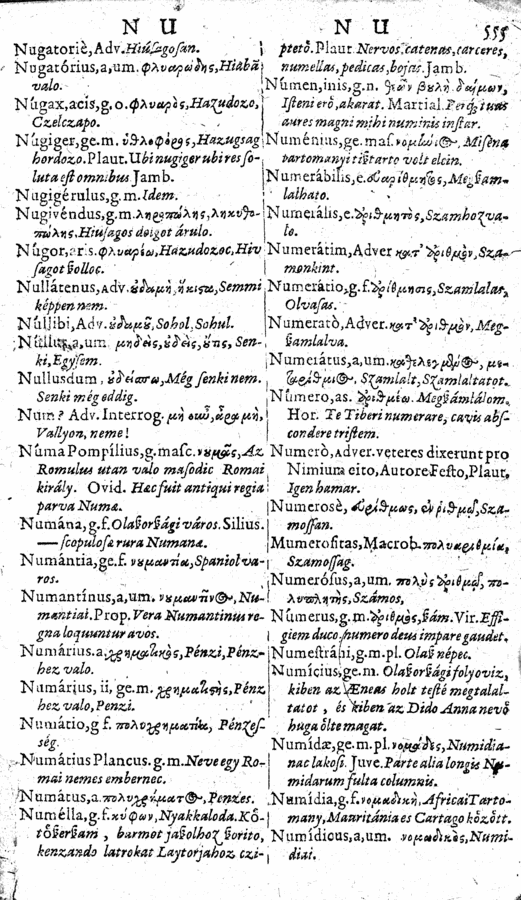 N U
Nugatoriè, Adv. Hiúsagosan.
Nugatórius, a, um. φλυαρώδης, Hiabá
valo.
Núgax, acis, g, o. φλυαρὸς, Hazudozo,
Czelczapo.
Núgiger, ge. m. Hazugsag
hordozo. Plaut. Ubi nugiger ubi res so-
luta est omnibus Jamb.
Nugigérulus, g. m. Idem.
Nugivéndus, g. m. ληροπώλης, ληκυθο-
πώλης. Hiusagos doigot árulo.
Núgor, aris. φλυαρέω, Hazudozoc, Hiv
sagot ßolloc.
Nullátenus, Adv. Semmi
képpen nem.
Núllibi, Adv. Sohol, Sohul.
Núllus, a, um. Sen-
ki, Egysem.
Nullusdum, Még senki nem.
Senki még eddig.
Num? Adv. Interrog. μὴ
Vallyon, neme!
Núma Pompílius, g. masc. Az
Romulus utan valo masodic Romai
király. Ovid. Hæc fuit antiqui regia
parva Numæ.
Numána, g. f. Olaßorßági város. Silius.
— scopulosæ rura Numanæ.
Numántia, ge, f. Spaniol va-
ros.
Numantínus, a, um. Nu-
mantiai. Prop. Vera Numantinus re-
gna loquuntur avos.
Numárius. a. χρηματικὸς, Pénzi, Pénz-
hez valo.
Numárius, ii, ge. m. Pénz
hez valo, Penzi.
Numátio, g f. Pénzes-
ség.
Numátius Plancus. g. m. Neve egy Ro-
mai nemes embernec.
Numátus, a. Penzes.
Numélla, g. f. κύφων, Nyakkaloda. Kö-
tößerßam, barmot jaßolhoz ßorito,
kenzando latrokat Laytorjahoz czi-
N U 555
pteto. Plaut. Nervos, catenas, carceres,
numellas, pedicas, bojas. Jamb.
Númen, inis, g. n. θεῶν βουλὴ
Isteni erö, akarat. Martial.
aures magni mihi numinis instar.
Numénius, ge. mas. Misena
partomanyi tißtarto volt elein.
Numerábilis, e. Megßam-
lalhato.
Numerális, e. Szamhoz va-
lo.
Numerátim, Adver κατ' Sza-
monkint.
Numerátio, g. f. Szamlalas,
Olvasas.
Numeratò, Adver. κατ' Meg-
ßamlalva.
Numerátus, a, um.
Szamlalt, Szamlaltatot.
Número, as. Megßámlálom.
Hor. Te Tiberi numerare, cavis abs-
condere tristem.
Numerò, Adver. veteres dixerunt pro
Nimium cito, Autore Festo, Plaut.
Igen hamar.
Numerosè, Sza-
mossan.
Mumerositas, Macrob. πολυαριθμία,
Szamossag.
Numerósus, a, um. πολὺς
Számos,
Númerus, g. m. ßám. Vir. Effi-
giem duco, numero deus impare gaudet.
Numestráni, g. m. pl. Olaß népec.
Numícius, ge. m. Olaßorßági folyo viz,
kiben az Æneas holt testé megtalal-
tatot, és kiben az Dido Anna nevö
huga ölte magat.
Numídæ, ge. m. pl. νομάδες, Numidia-
nac lakosi. Juve. Parte alia longis Nu-
midarum fulta columnis.
Numídia, g, f. νομαδικὴ, Africai Tarto-
many, Mauritánia es Cartago között.
Numídicus, a, um. νομαδικὸς, Numi-
diai.